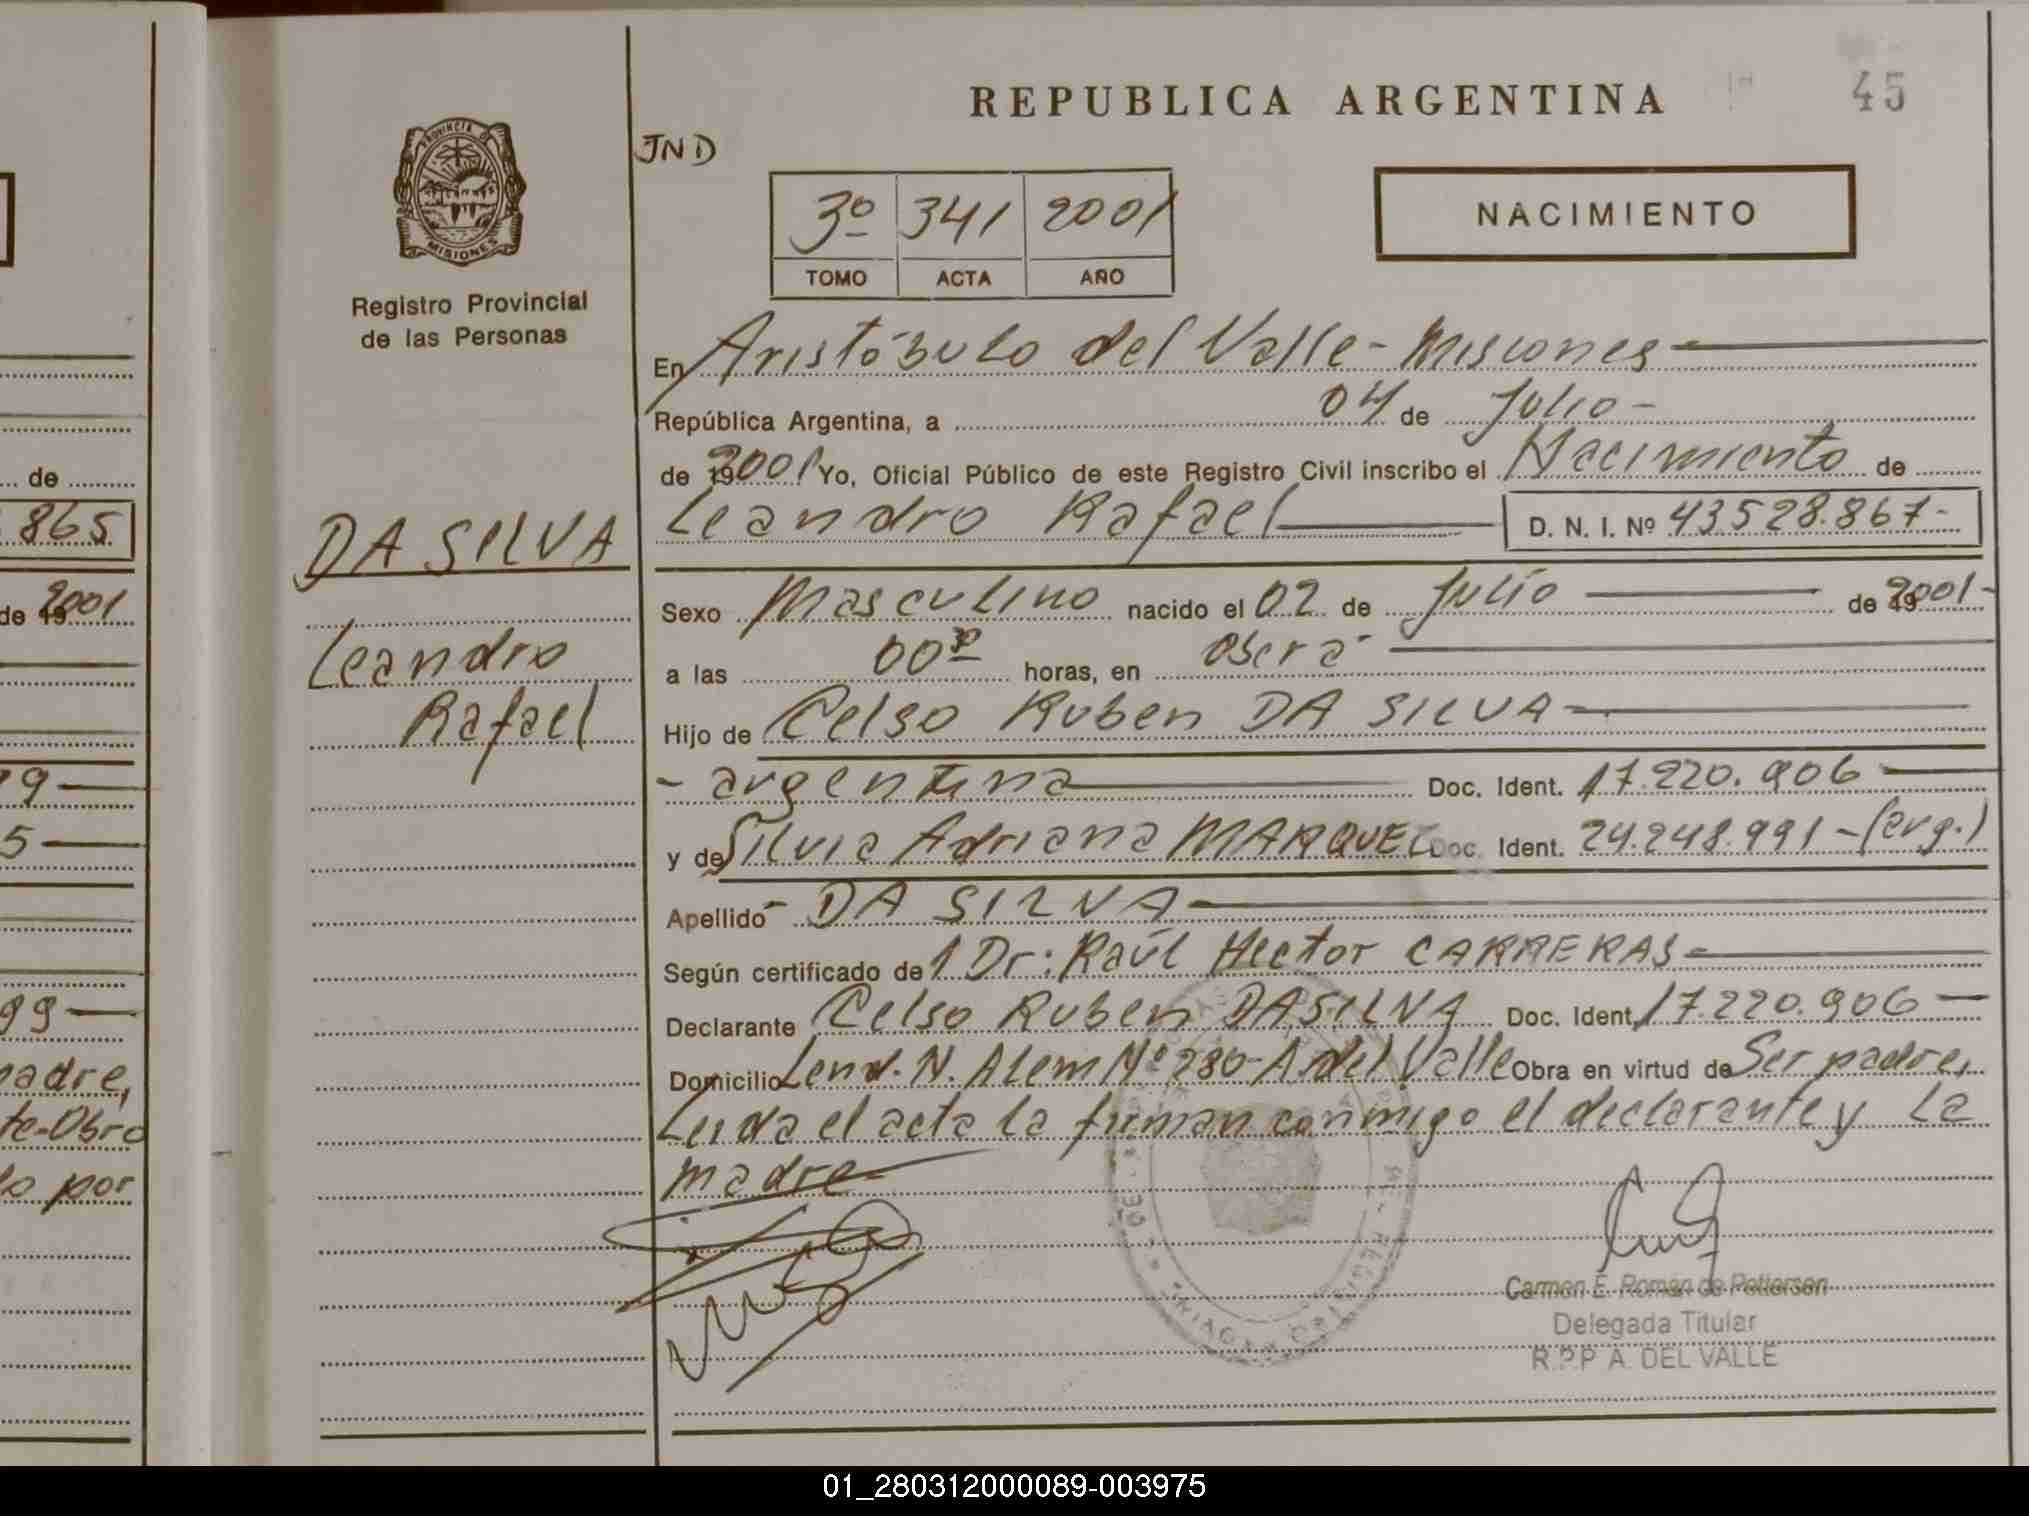 REPUBLICA ARGENTINA
45
JND
PROVINCIA DE
MISIONES
3º 341 2001
TOMO ACTA AÑO
NACIMIENTO
Registro Provincial
de las Personas
En Aristóbulo del Valle - Misiones
República Argentina, a 04 de Julio -
de 2001 Yo, Oficial Público de este Registro Civil inscribo el Nacimiento de
Leandro Rafael D. N. I. Nº 43.528.867-
DA SILVA
Leandro
Rafael
Sexo Masculino nacido el 02 de Julio de 2001-
a las 00 30 horas, en Oberá -
Hijo de Celso Ruben DA SILVA
- argentina Doc. Ident. 17.220.906
y de Silvia Adriana MARQUEZ Doc. Ident. 24.248.991 - (arg.)
Apellido - DA SILVA
Según certificado de l Dr: Raúl Hector CARRERAS
Declarante Celso Ruben DA SILVA Doc. Ident. 17.220.906
Domicilio Lend. N. Alem Nº 280 - A. del Valle Obra en virtud de Ser padre,
Leida el acta la firman conmigo el declarante y la
madre
Carmen E. Román de Pettersen
Delegada Titular
R.P.P A. DEL VALLE
de
865
de 2001
9
5
99
padre,
te-Obro
lo por
01_280312000089-003975